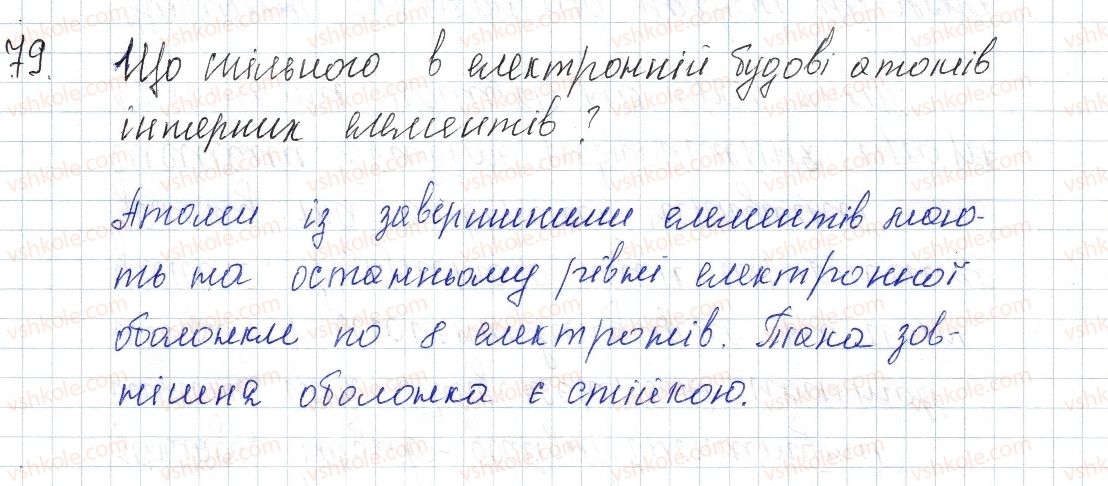 79. Що спільного в електронній будові атомів
інертних елементів?
Атоми із завершеними елементів маю-
ть на останньому рівні електронної
оболонки по 8 електронів. Така зов-
нішня оболонка є стійкою.